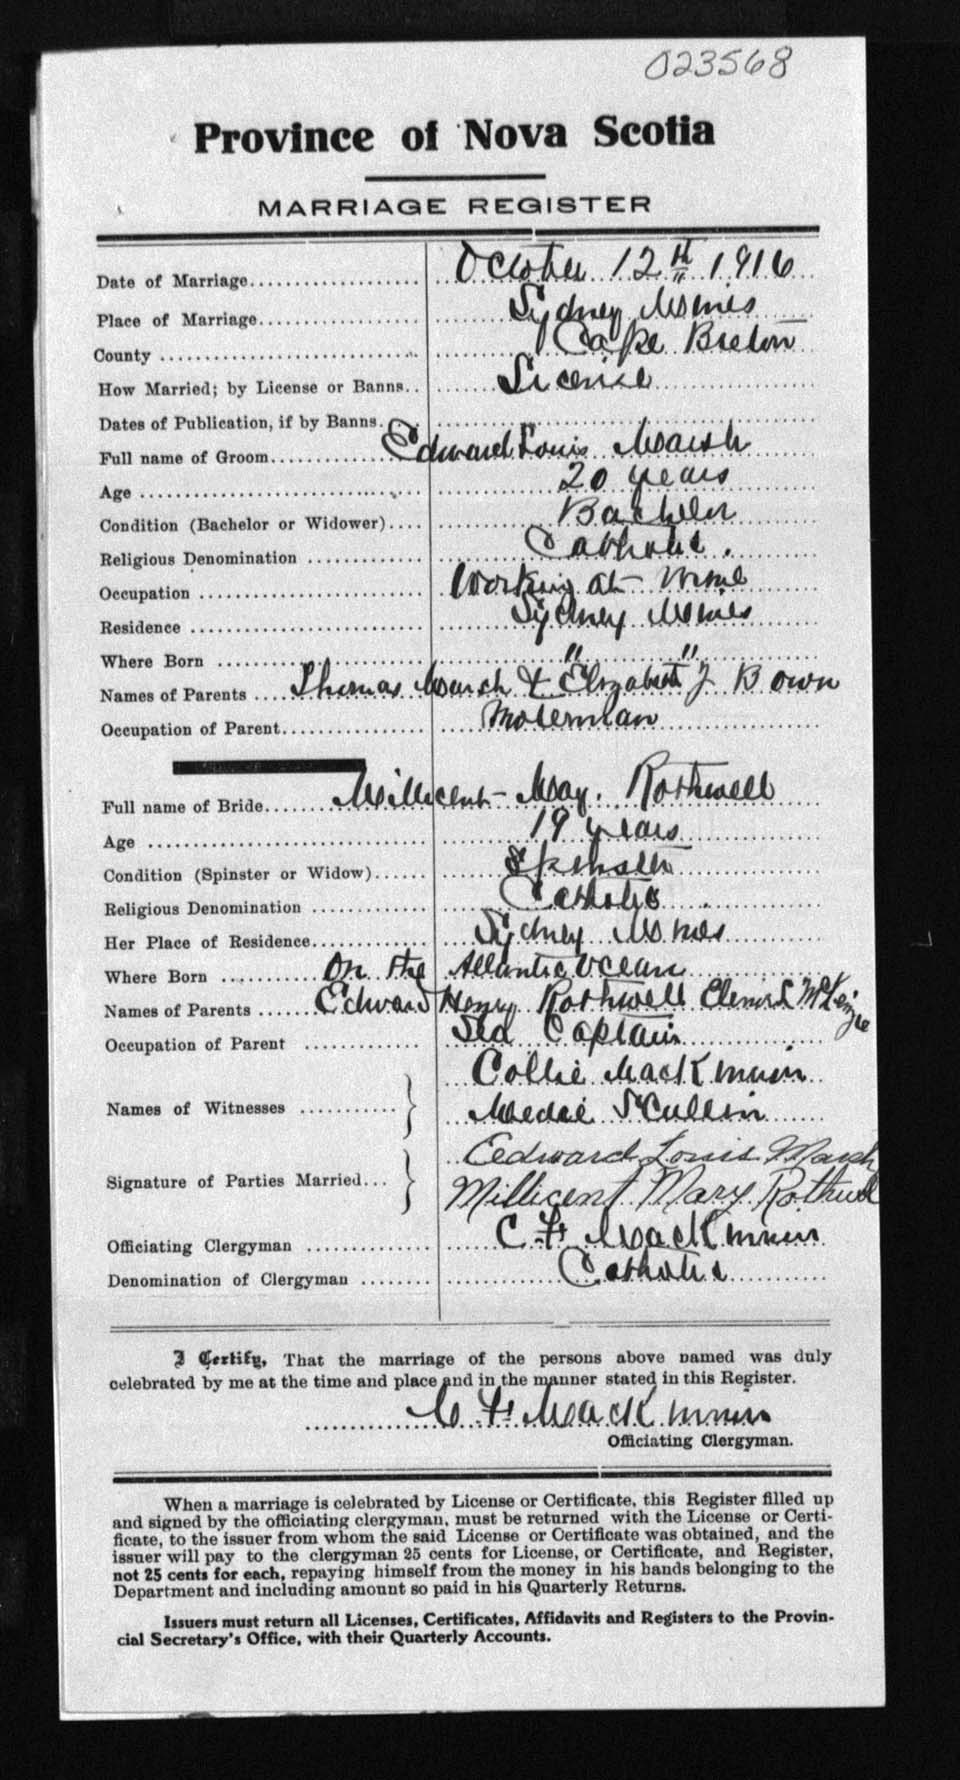 023568
Province of Nova Scotia
MARRIAGE REGISTER
Date of Marriage October 12th 1916
Place of Marriage Sydney Mines
County Cape Breton
How Married; by License or Banns License
Dates of Publication, if by Banns
Full name of Groom Edward Louis Marsh
Age 20 years
Condition (Bachelor or Widower) Bachelor
Religious Denomination Catholic.
Occupation Working at Mine
Residence Sydney Mines
Where Born " "
Names of Parents Thomas Marsh & Elizabeth J Bown
Occupation of Parent Moterman
Full name of Bride Millicent May. Rothwell
Age 19 years
Condition (Spinster or Widow) Spinster
Religious Denomination Catholic
Her Place of Residence Sydney Mines
Where Born On the Atlantic Ocean
Names of Parents Edward Henry Rothwell Elenor McKenzie
Occupation of Parent Sea Captain
Names of Witnesses Collie MacKinnon
Signature of Parties Married Edward Louis Marsh
Millicent Mary Rothwell
Officiating Clergyman C F MacKinnon
Denomination of Clergyman Catholic
I Certify, That the marriage of the persons above named was duly
celebrated by me at the time and place and in the manner stated in this Register.
C F MacKinnon
Officiating Clergyman.
When a marriage is celebrated by License or Certificate, this Register filled up
and signed by the officiating clergyman, must be returned with the License or Certi-
ficate, to the issuer from whom the said License or Certificate was obtained, and the
issuer will pay to the clergyman 25 cents for License, or Certificate, and Register,
not 25 cents for each, repaying himself from the money in his hands belonging to the
Department and including amount so paid in his Quarterly Returns.
Issuers must return all Licenses, Certificates, Affidavits and Registers to the Provin-
cial Secretary's Office, with their Quarterly Accounts.